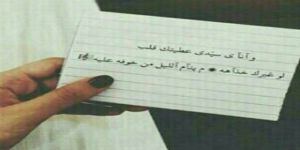 وآنآ ي سيدي عطيتك قلب
لو غيرك خذآهه م ينآم آلليل من خوفه عليه